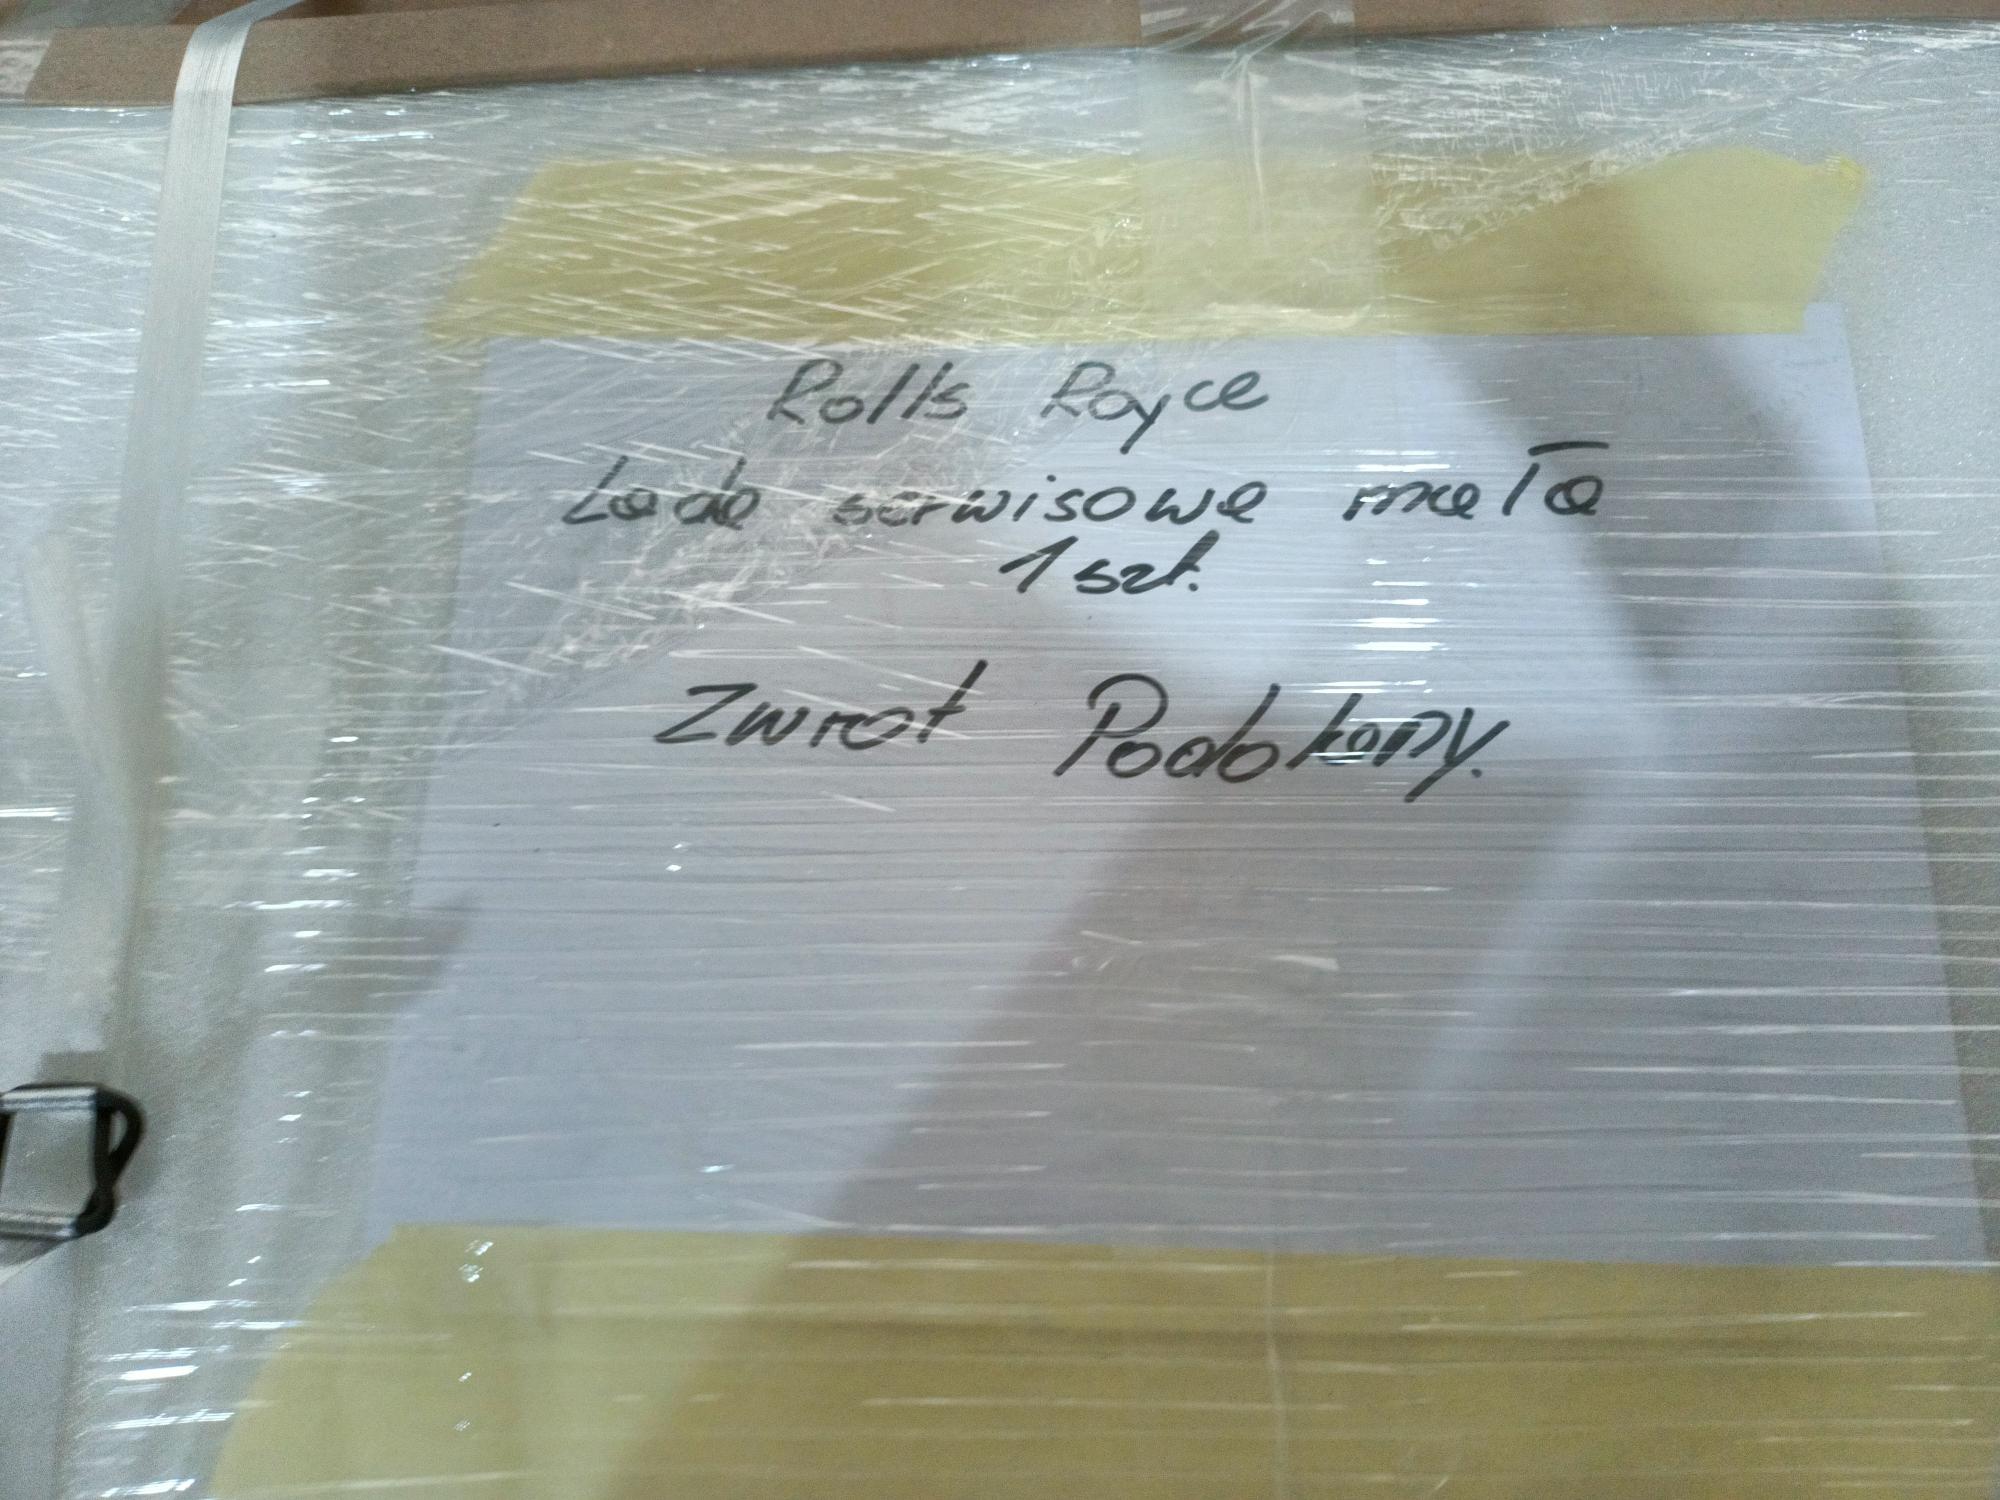 Rolls Royce
Lada serwisowa mała
1 szt.
Zwrot Podokany.